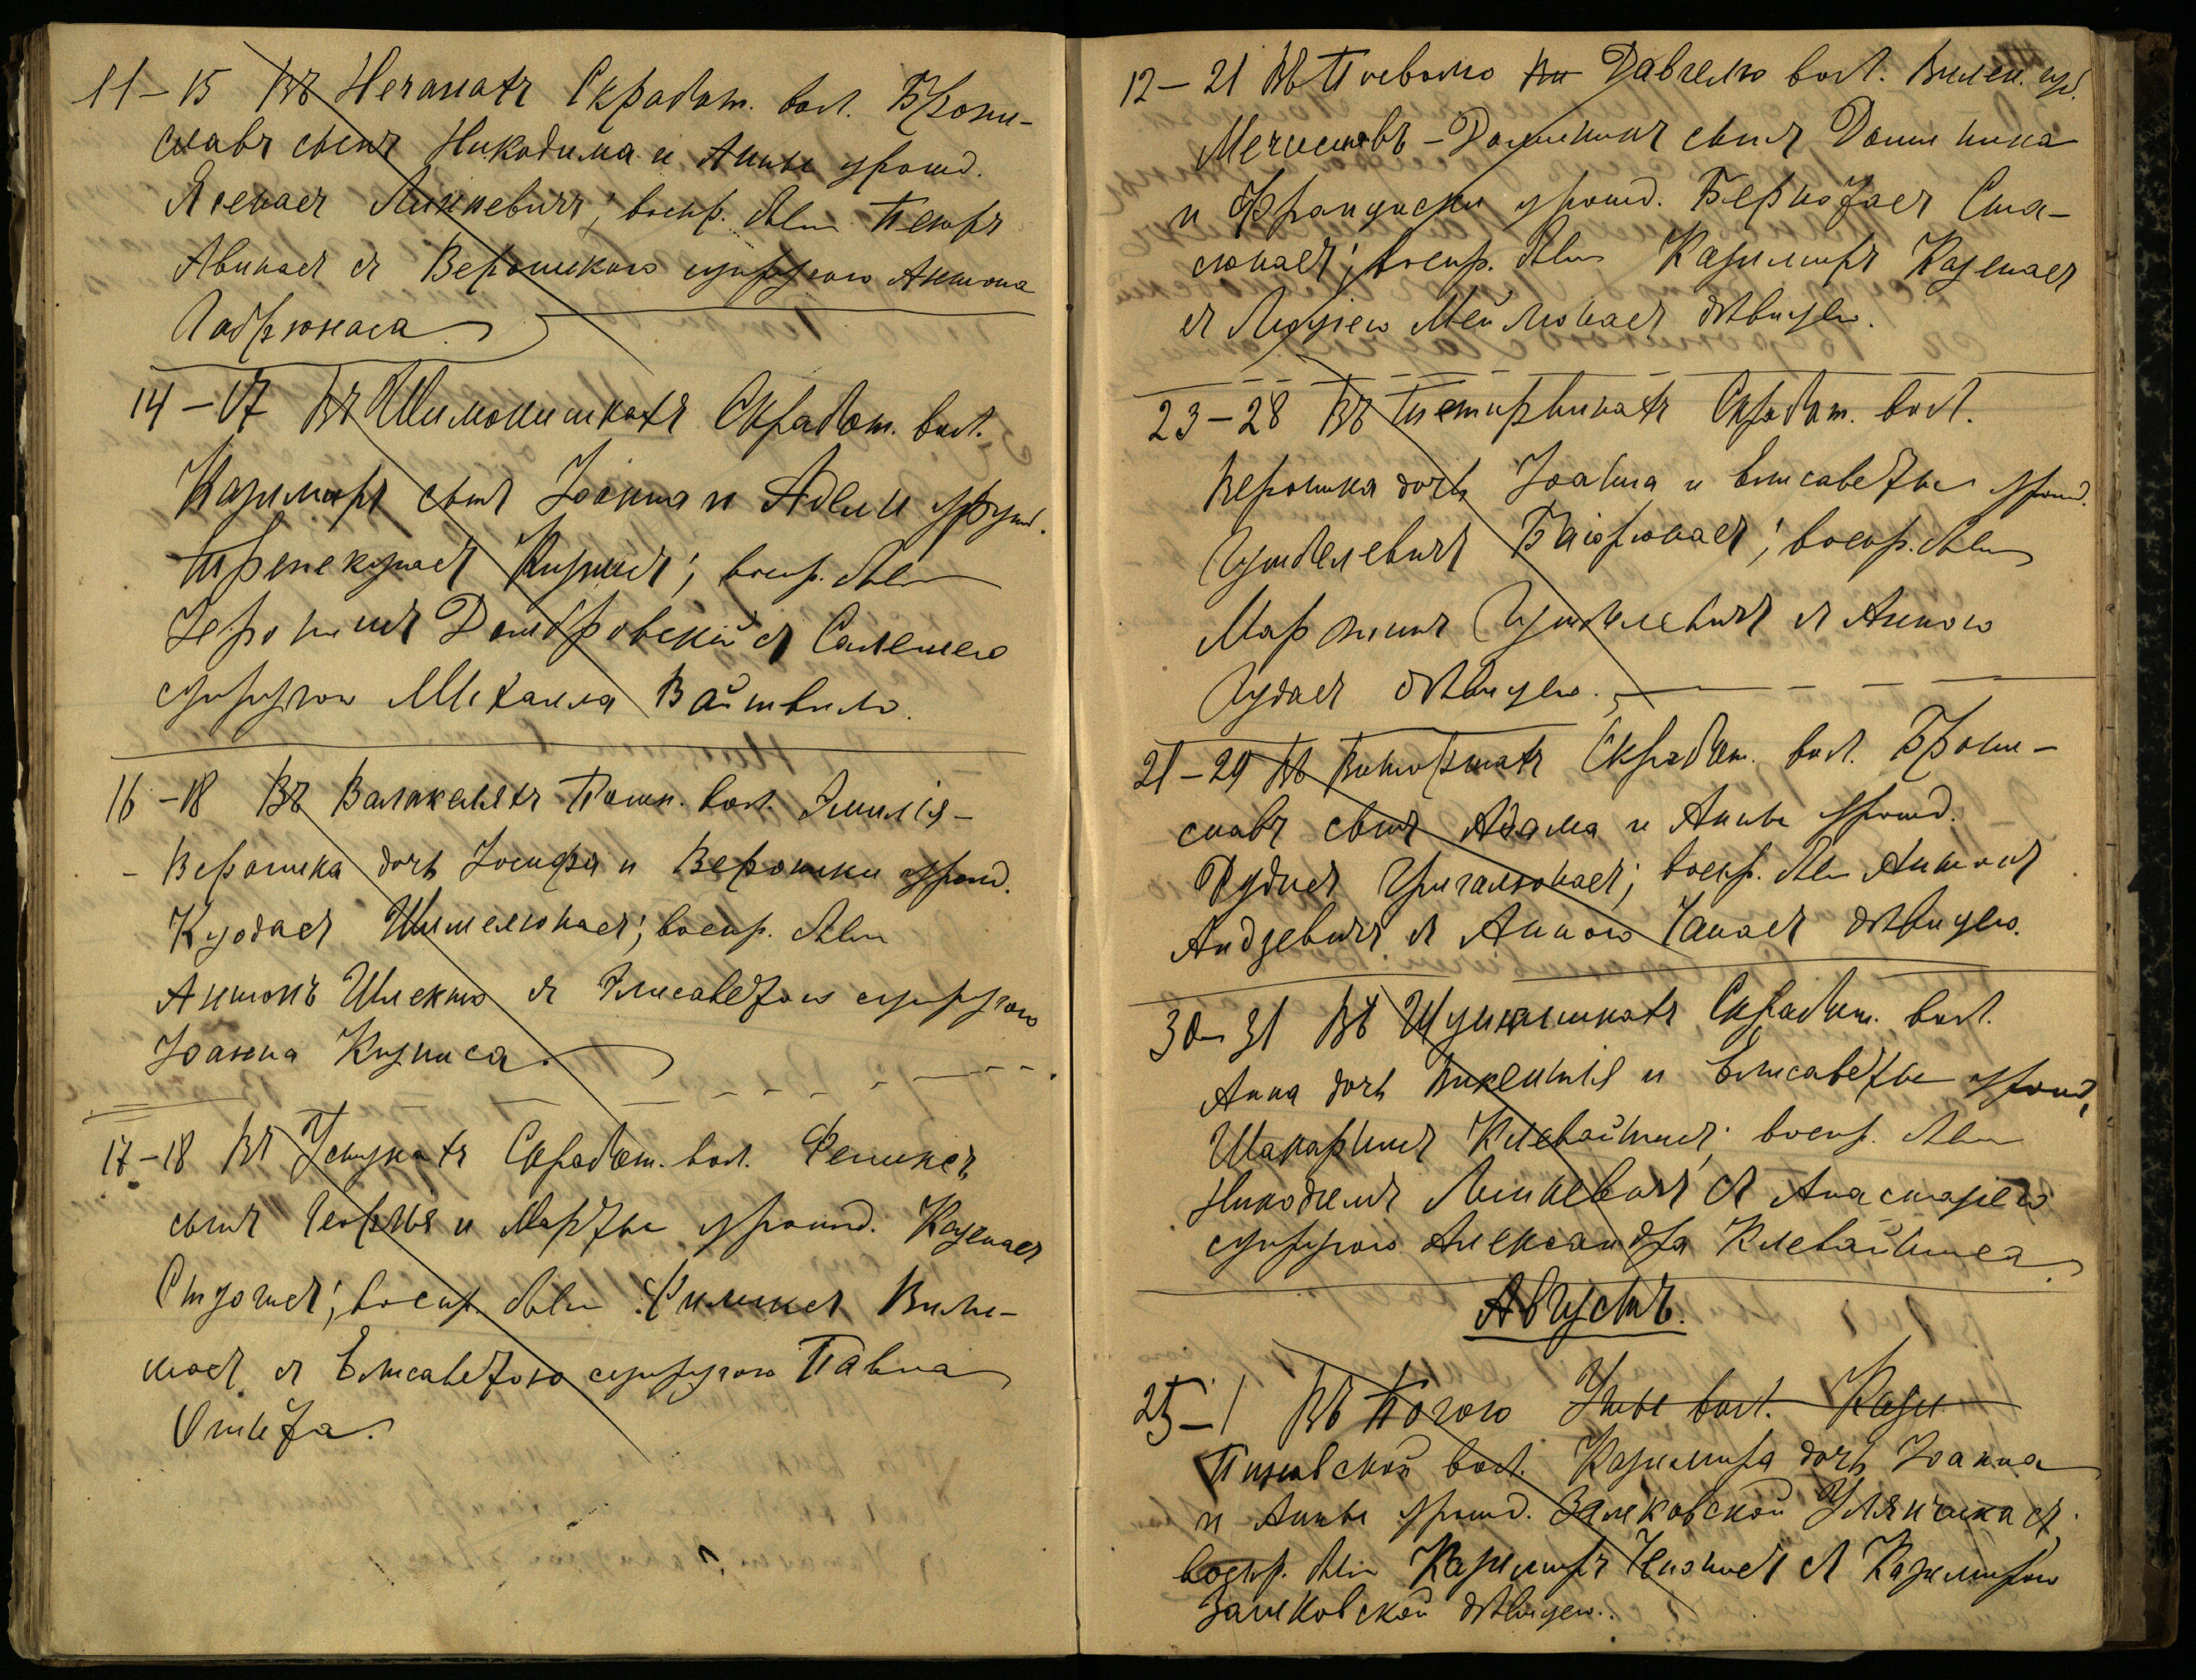 11 – 15 Въ Нечанахъ Скрабат. вол. Брони-
славъ сынъ Никодима и Анны урожд.
Ясенаст Линкевичъ; воспр. были Петръ
Авинасъ съ Вероникою супругою Антона
Габрюнаса.
14 – 17 Въ Шимонишкахъ Скрабат. вол.
Казимиръ сынъ Іоанна и Адели урожд.
Трепекунасъ Кизнисъ; воспр. были
Іеронимъ Домбровскій съ Саломеею
супругою Михаила Вайтвило.
16 – 18 Въ Валакеляхъ Помп. вол. Эмилія-
- Вероника дочь Іосифа и Вероники урожд.
Куодасъ Шимелюнасъ; воспр. были
Антонъ Шлекто съ Элисаветою супругою
Іоанна Кизниса.
17 – 18 Въ Устукахъ Скрабат. вол. Феликсъ
сынъ Георгія и Марты урожд. Казенасъ
воспр. были Феликсъ
съ Елисаветою супругою Павла
12 – 21 Въ Поеволю Ви Давгелю вол. Вилен. губ.
Мечиславъ – Доминикъ сынъ Доминика
и Франциски урожд. Бернотасъ Ста-
сюнасъ; воспр. были Казимиръ Казенасъ
съ Люціею Мейлюнасъ дѣвицею.
23 – 28 Въ Скрабат. вол.
Вероника дочь Іоанна и Елисаветы урожд.
Гумбелевичъ Баюрюнасъ; воспр. были
Мартинъ Гумбелевичъ съ Анною
Гудасъ дѣвицею.
21 – 29 Въ Скрабат. вол. Брони-
славъ сынъ Адама и Анны урожд.
Дудисъ Григалюнасъ; воспр. были Антонъ
Андзевичъ съ Анною дѣвицею.
30 – 31 Въ Скрабат. вол.
Анна дочь Викентія и Елисаветы урожд.
Шакарнисъ Клевайтисъ; воспр. были
Никодимъ Линкевичъ съ Анастазіею
супругою Александра Клевайтиса.
Августъ.
25 – 1 Въ вол. Кази
вол. Казимира дочь Іоанна
и Анны урожд. Залковской
воспр. были Казимиръ съ Казимирою
Залковской дѣвицею.